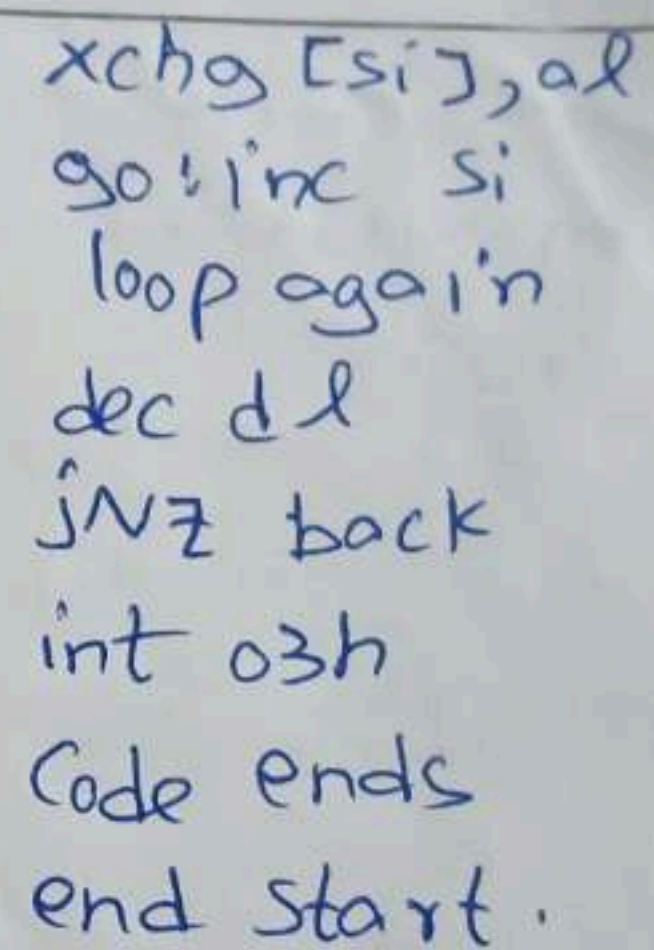 xchg [si], al
go: inc si
loop again
dec dl
jNZ back
int 03h
Code ends
end start.